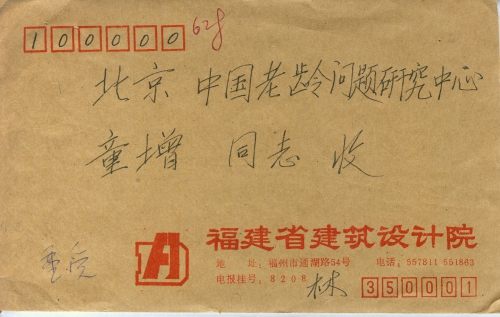 100000 628
北京 中国老龄问题研究中心
童增 同志 收
福建省建筑设计院
地 址:福州市通湖路54号 电话:557811 551863
电报挂号:8208
林 350001